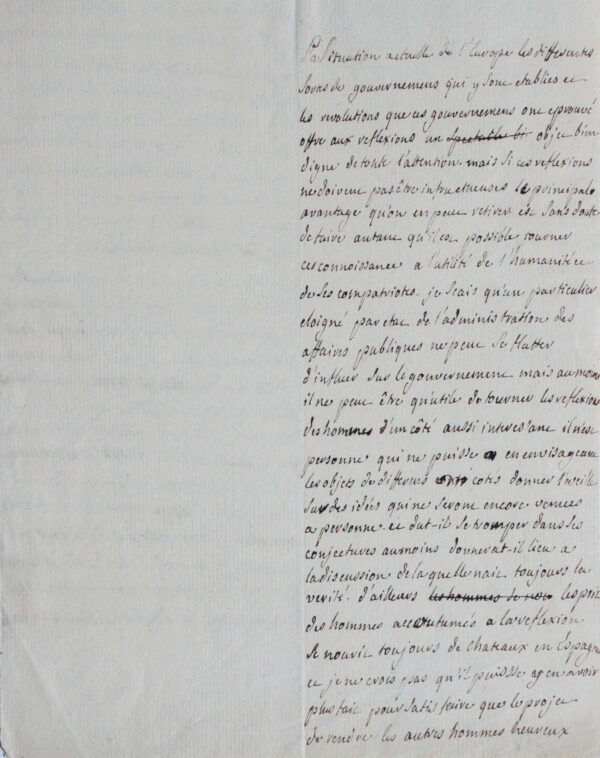 La Situation actuelle de l'Europe les differentes
sortes de gouvernemens qui y sont etablies et
les revolutions que ces gouvernemens ont eprouvé
offre aux reflexions un spectacle bi objet bien
digne de toute l'attention. mais si ces reflexions
ne doivent pas être infructueuses le principale
avantage qu'on en peut retirer est sans doute
de faire autant qu'il est possible tourner
ces connoissance a l'utilité de l'humanité et
de ses compatriotes. je scais qu'un particulier
eloigné par etat de l'administration des
affaires publiques ne peut se flatter
d'influer sur le gouvernement mais au moins
il ne peut être qu'utile de tourner les reflexion
des hommes d'un côté aussi interessant il n'est
personne qui ne puisse en envisageant
les objets de differens cotés donner l'eveille
sur des idées qui ne seront encore venues
a personne et dut-il se tromper dans ses
conjectures au moins donnerat-il lieu a
la discussion de laquelle nait toujours la
verité. d'ailleurs les hommes se nou l'esprit
des hommes accoutumés a la reflexion
se nourit toujours de chateaux en Espagne
et je ne crois pas qu'il puisse y en avoir
plus fait pour satisfaire que le projet
de rendre les autres hommes heureux